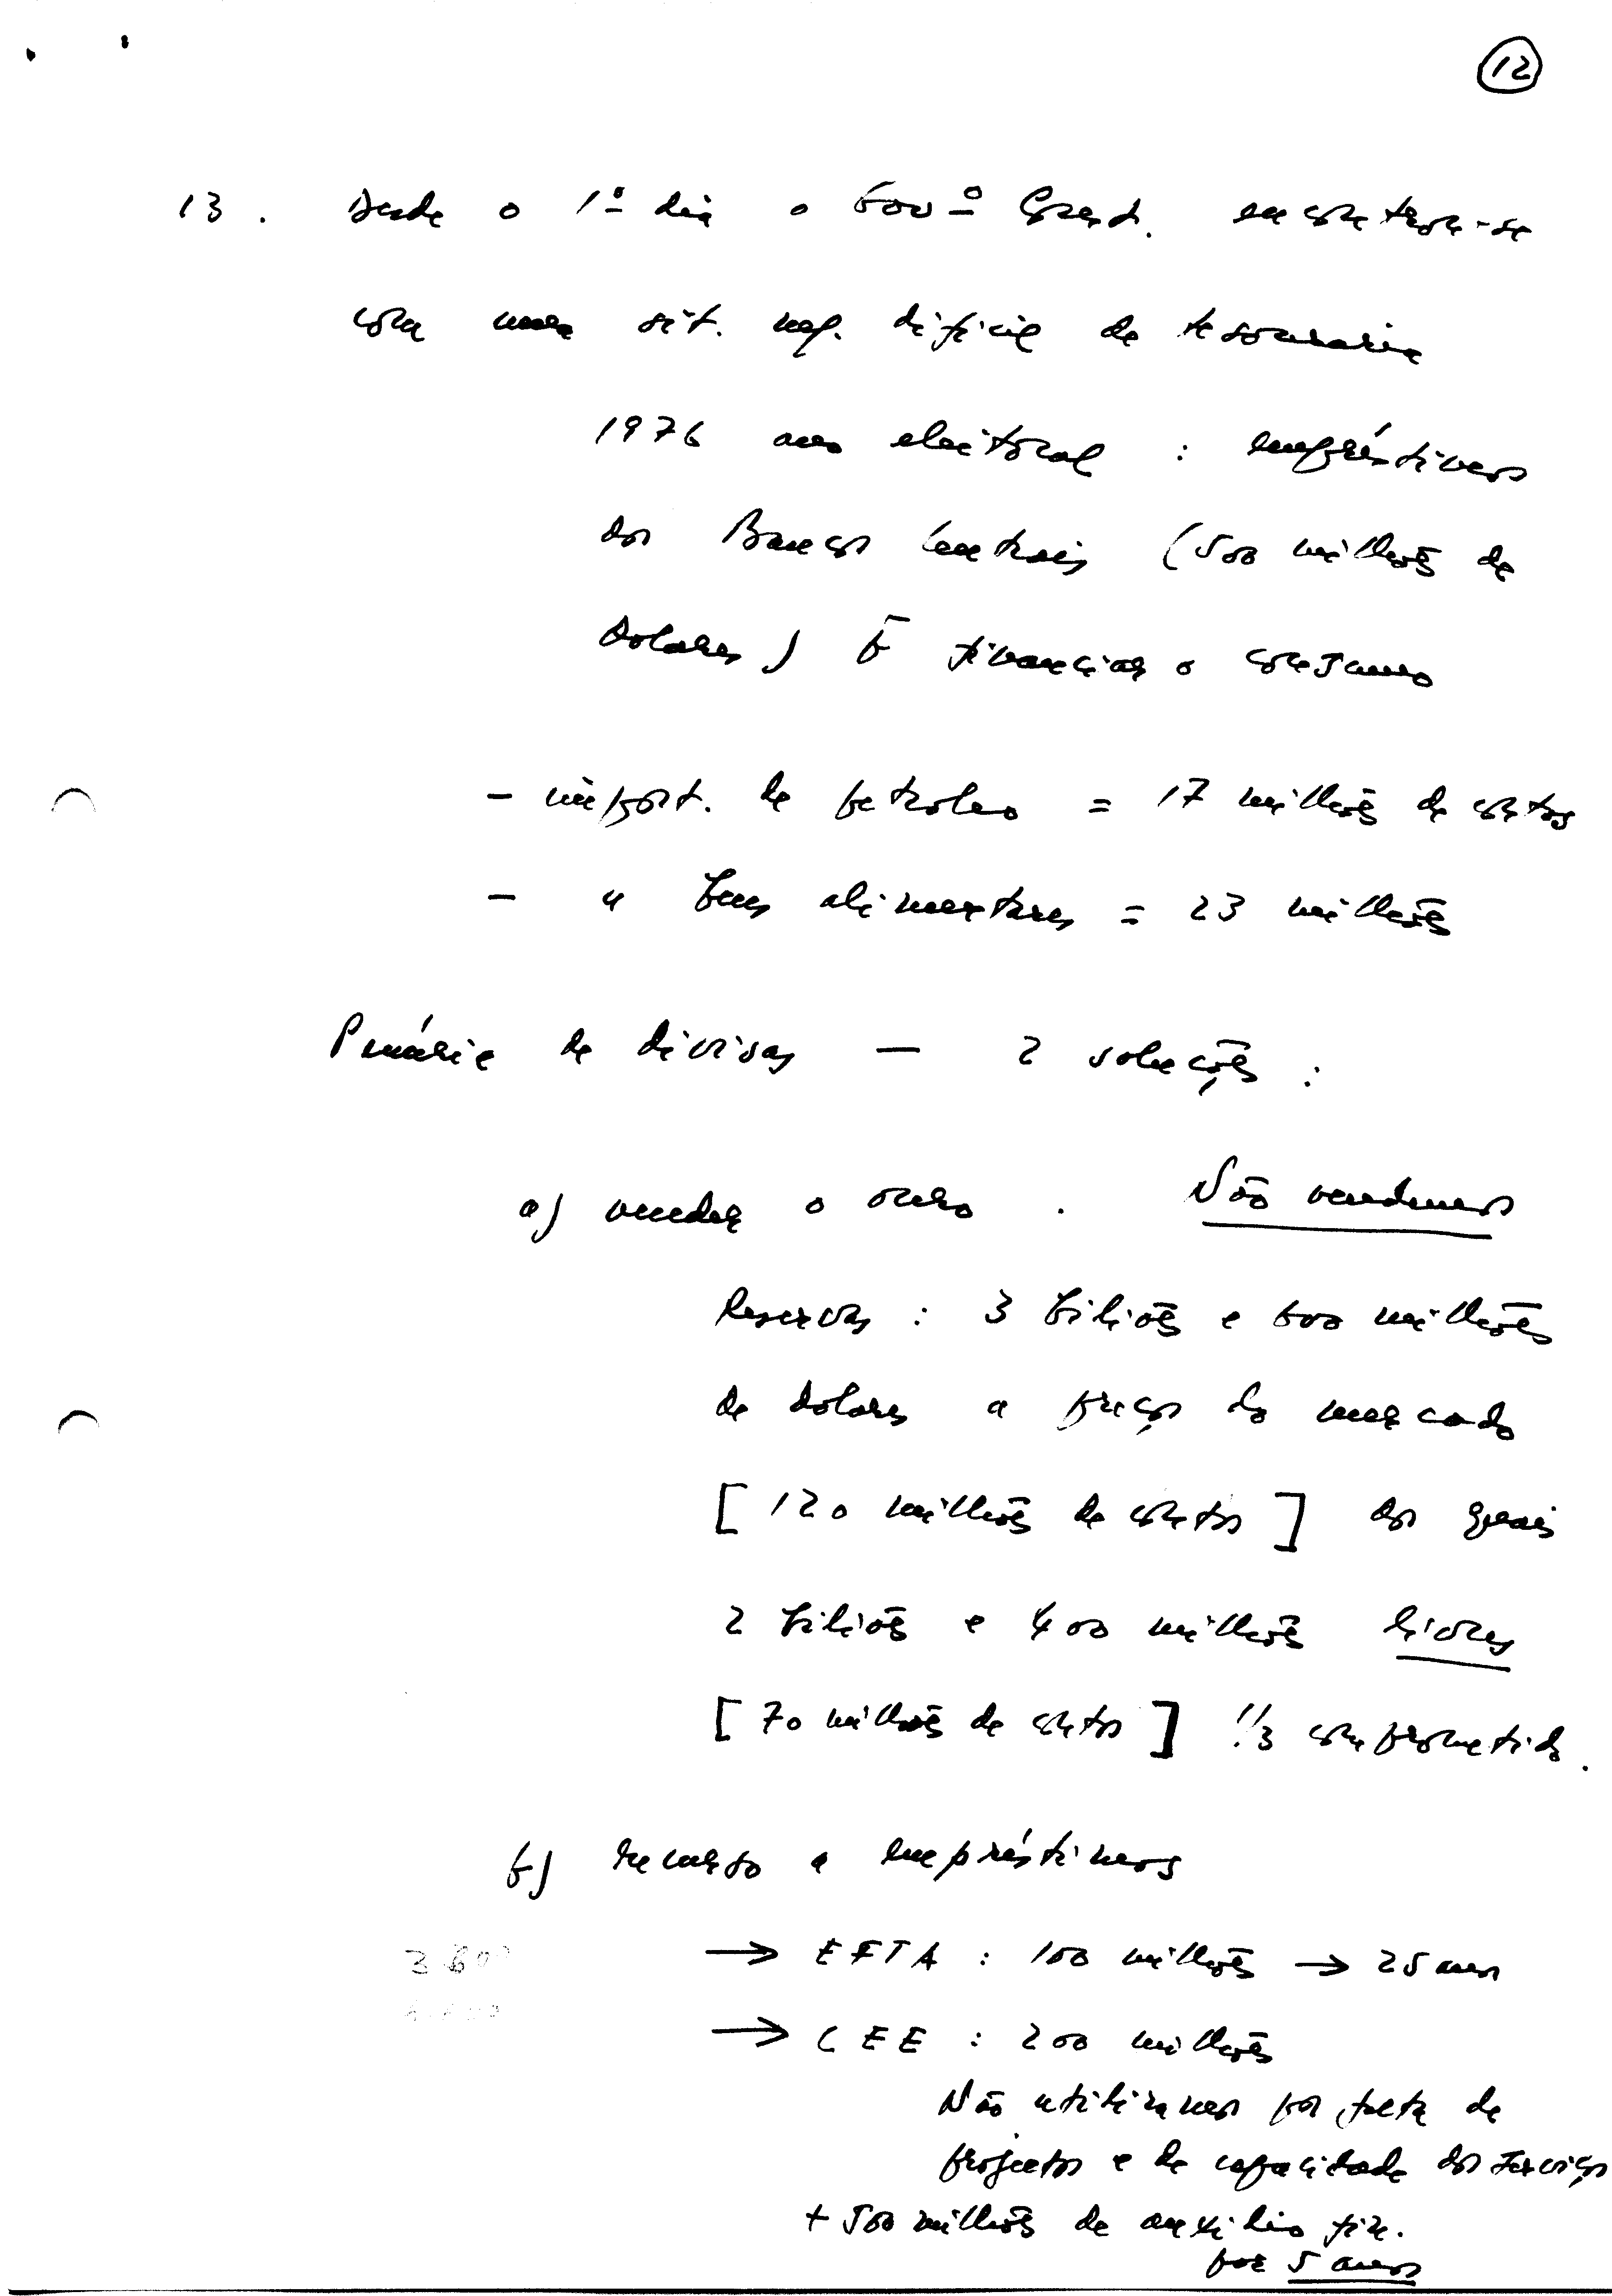 12
13. Desde o 1º dia o Gov.º Const. encontrou-se
com uma sit. mt. difícil de tesouraria
1976 ano eleitoral : empréstimos
dos Bancos Centrais (500 milhões de
dolares) financiar o consumo
- import. de petroleo = 17 milhões de contos
- " bens alimentares = 23 milhões
Penúria de divisas — 2 soluções :
a) vender o ouro . Não vendemos
Reservas : 3 biliões e 600 milhões
de dolares a preço do mercado
[120 milhões de contos] dos quais
2 biliões e 400 milhões livres
[70 milhões de contos] 1/3 comprometido.
b) recurso a empréstimos
→ EFTA : 100 milhões → 25 anos
3.600
→ CEE : 200 milhões
Não utilizamos por falta de
projectos e de capacidade dos serviços
+ 500 milhões de auxilio fin.
por 5 anos